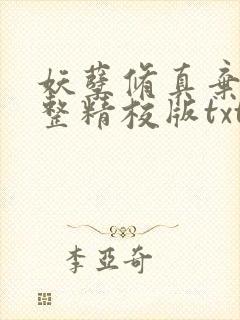 妖孽修真弃
整精校版txt
李亚奇